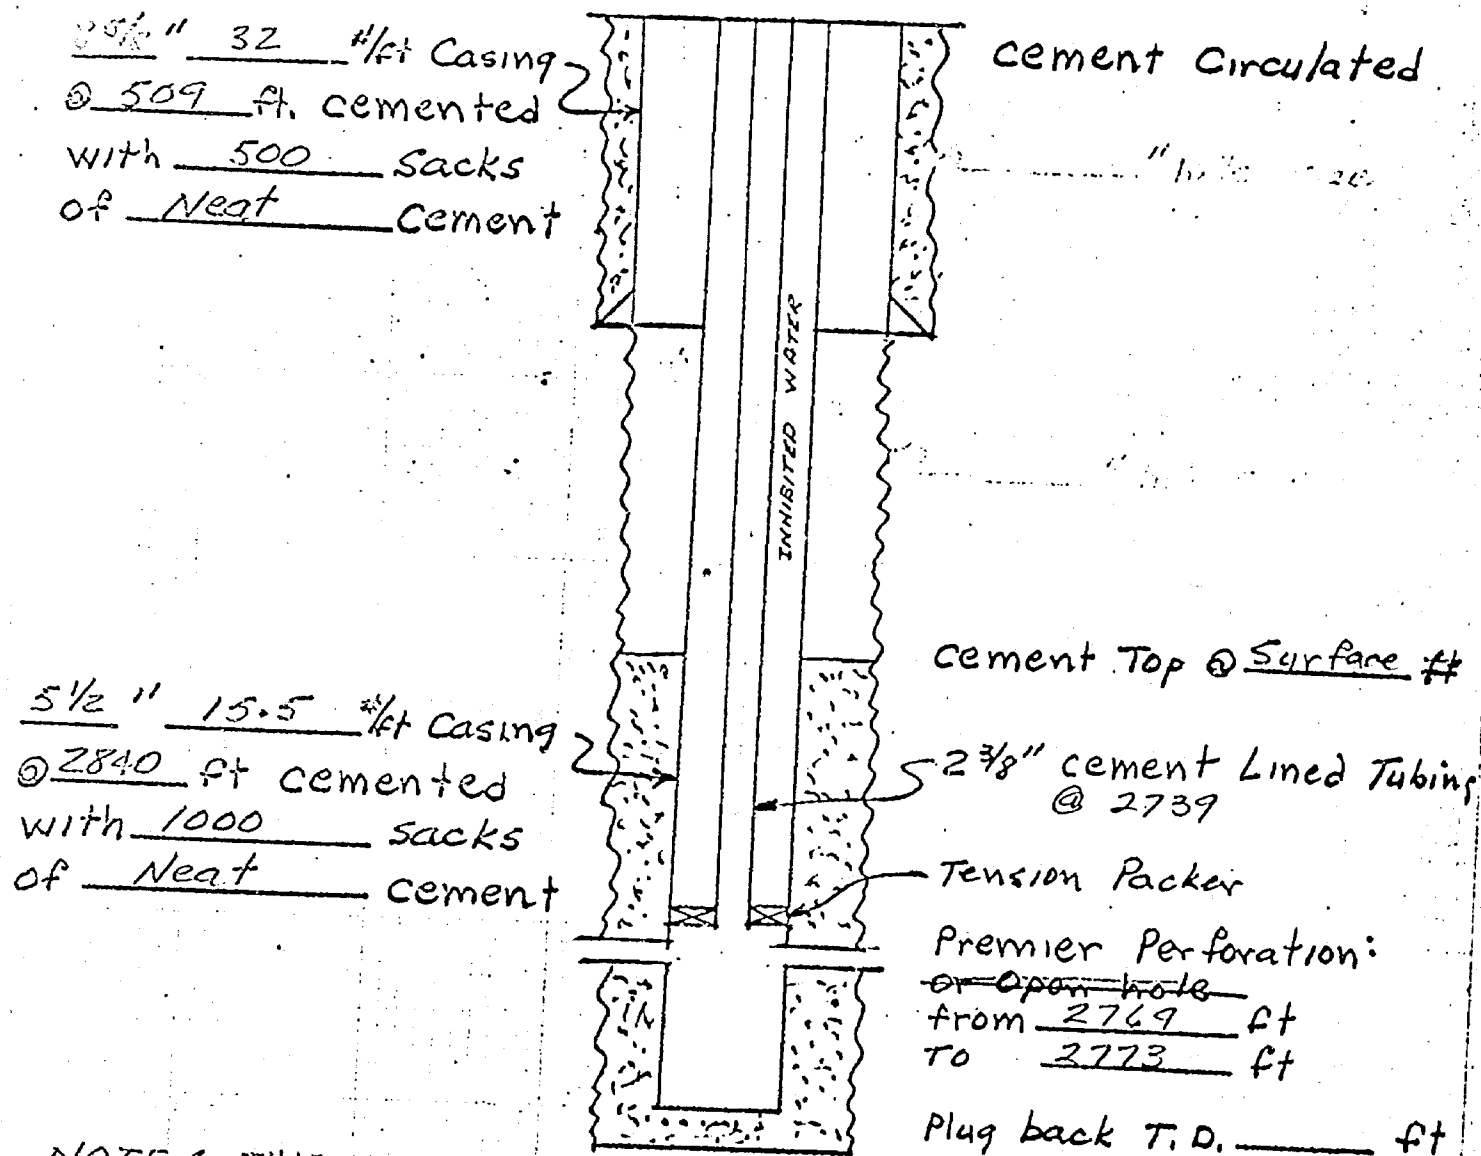 8 5/8 " 32 #/ft Casing
@ 509 ft. cemented
with 500 Sacks
of Neat Cement
cement Circulated
" hole
INHIBITED WATER
5 1/2 " 15.5 #/ft Casing
@ 2840 ft cemented
with 1000 sacks
of Neat cement
cement Top @ Surface ft
2 3/8" cement Lined Tubing
@ 2739
Tension Packer
Premier Perforation:
or Open hole
from 2769 ft
To 2773 ft
Plug back T.D. ft